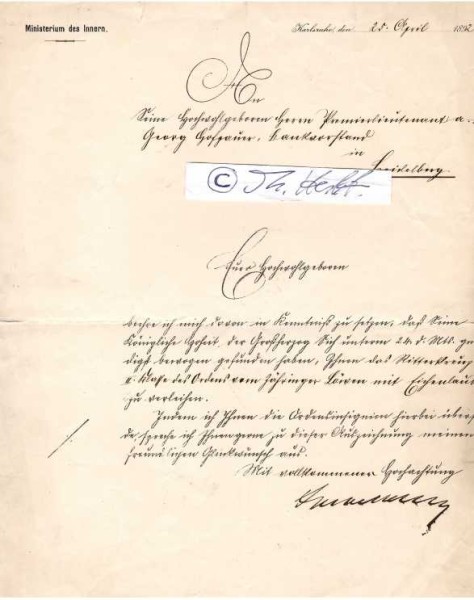 Ministerium des Innern.
Karlsruhe, den 25. April 1892
An
Seine Hochwohlgeboren Herrn Premierlieutenant a.
Georg
in
Heidelberg.
©
Euer Hochwohlgeboren
beehre ich mich davon in Kenntniß zu setzen, daß Seine
Königliche Hoheit, der Großherzog Sich unterm 24. d. Mts. gnä
digst bewogen gefunden haben, Ihnen das Ritterkreuz
II. Klasse des Ordens vom Zähringer Löwen mit Eichenlaub
zu verleihen.
Indem ich Ihnen die Ordensinsignien hierbei übersen
de, spreche ich Ihnen gerne zu dieser Auszeichnung meinen
freundlichen Glückwunsch aus.
Mit vollkommener Hochachtung